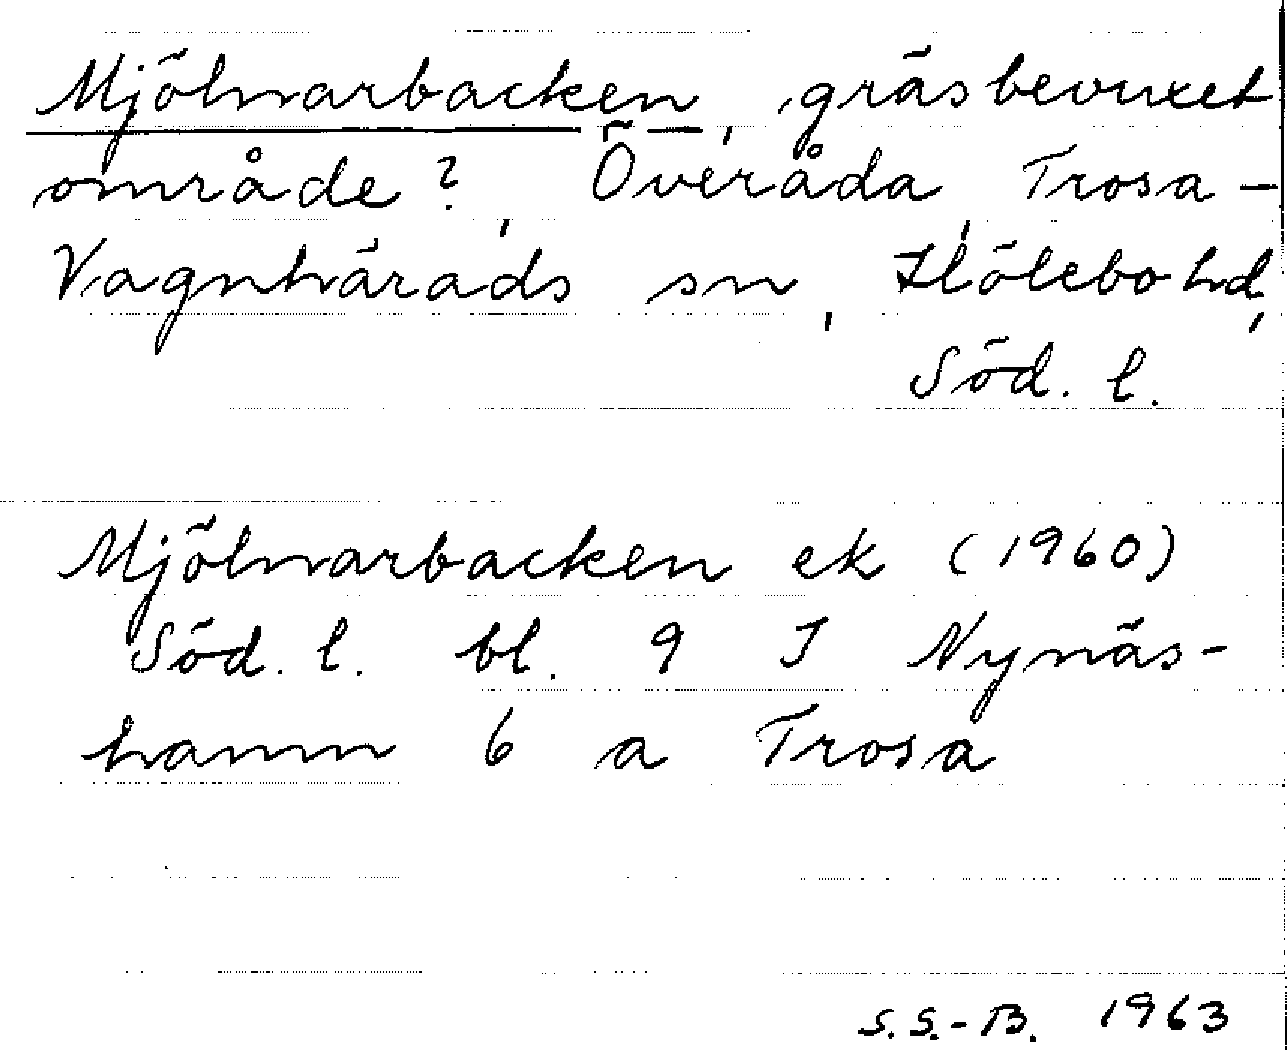 Mjölnarbacken, gräsbevuxet
område?, Överåda, Trosa-
Vagnhärads sn, Hölebo hd,
Söd. l.
Mjölnarbacken ek (1960)
Söd. l. bl. 9 I Nynäs-
hamn 6 a Trosa
S.S.-B. 1963